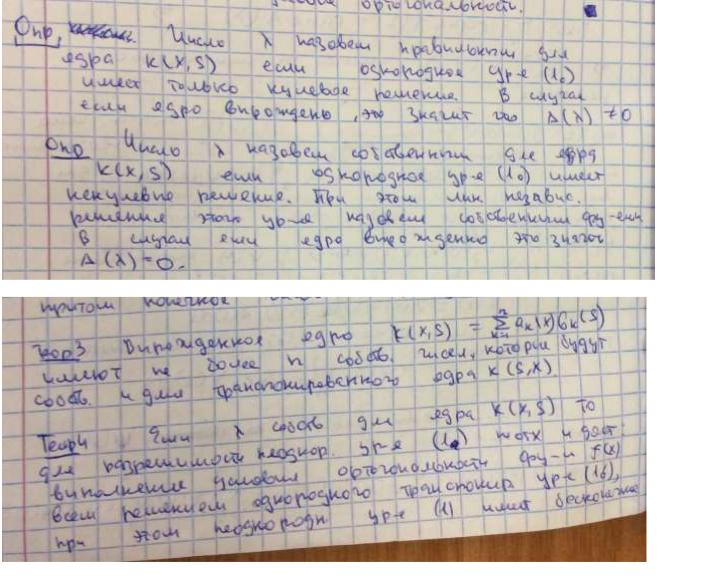 ортогональность.
Опр. Число λ назовем правильным для
ядра K(x,s) если однородное ур-е (1₀)
имеет только нулевое решение. В случае
если ядро вырождено, это значит что Δ(λ) ≠ 0
Опр Число λ назовем собственным для ядра
K(x,s) если однородное ур-е (1₀) имеет
ненулевые решение. При этом лин независ.
решение этого ур-я назовем собственными фу-ями
В случае если ядро вырожденно это значит
Δ(λ)=0.
притом конечное
Теор3 Вырожденное ядро K(x,s) = ∑ₖ₌₁ⁿ aₖ(x)bₖ(s)
имеют не более n собств. чисел, которые будут
собств. и для транспонированного ядра K(s,x)
Теор4 Если λ собств для ядра K(x,s) то
для разрешимости неоднор. ур-я необх и дост.
выполнение условия ортогональности фу-и f(x)
всем решением однородного транспонир ур-е
при этом неоднородн ур-е (1) имеет бесконечно